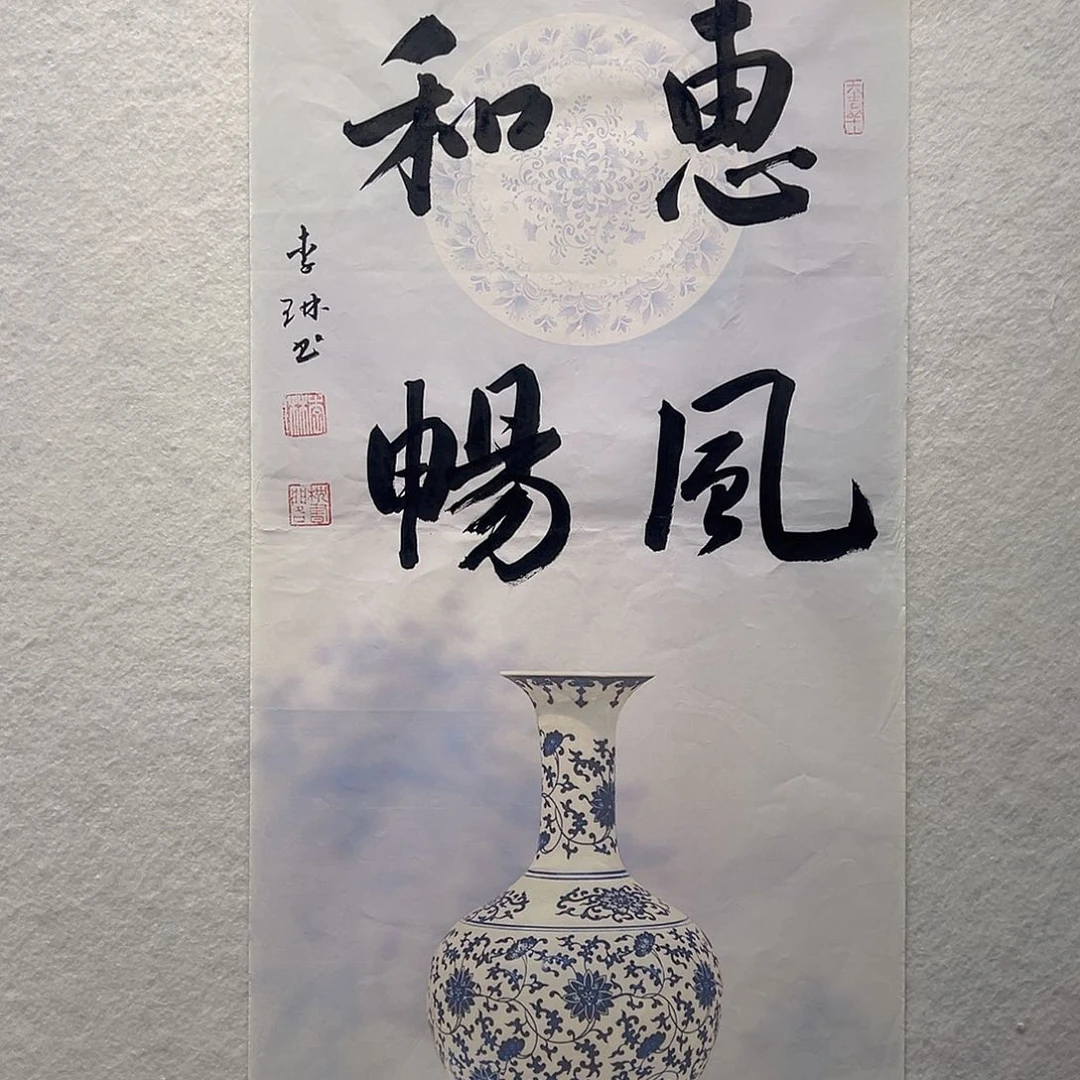 惠風
和暢
李琳书